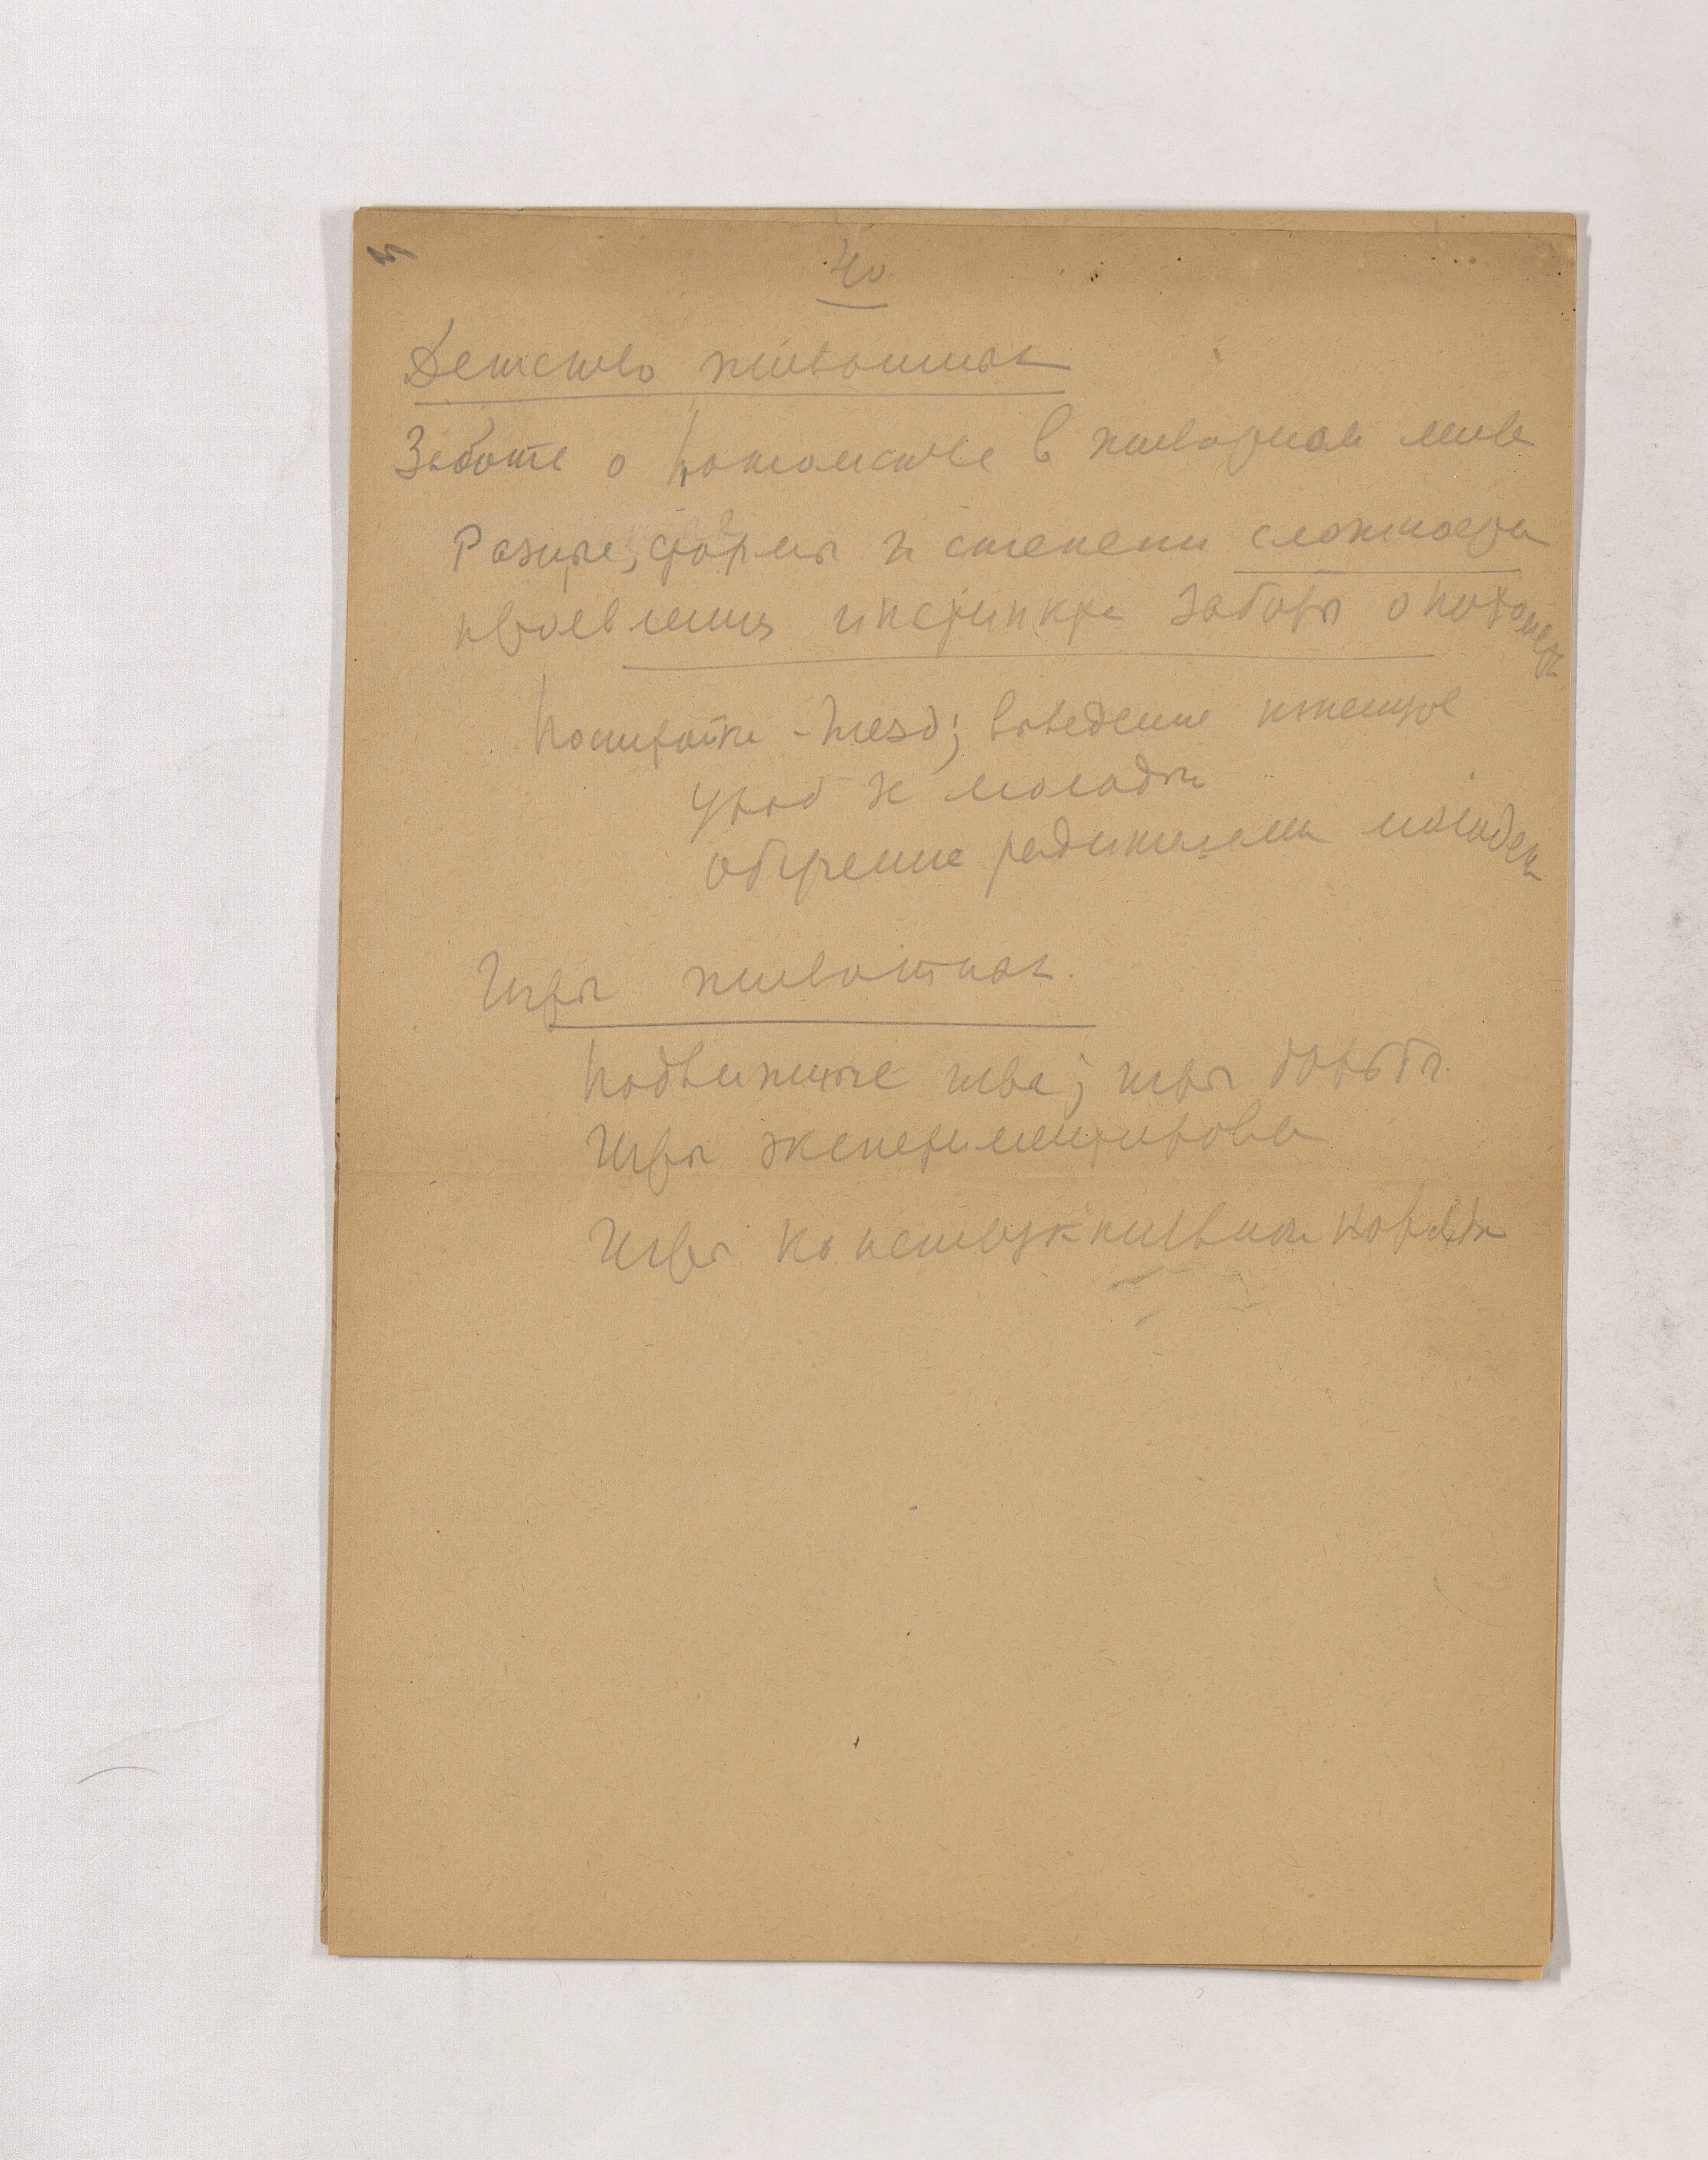 40
Детство животных
Забота о потомстве в животном мире
Разные формы и степени сложности
проявления инстинкта заботы о потомст
Постройки гнезд; выведение птенцов
Уход за молоды
обучение родителями молодежи
Игры животных.
Подвижные игры; игры борьбы.
Игры экспериментирова
Игры конструктивного